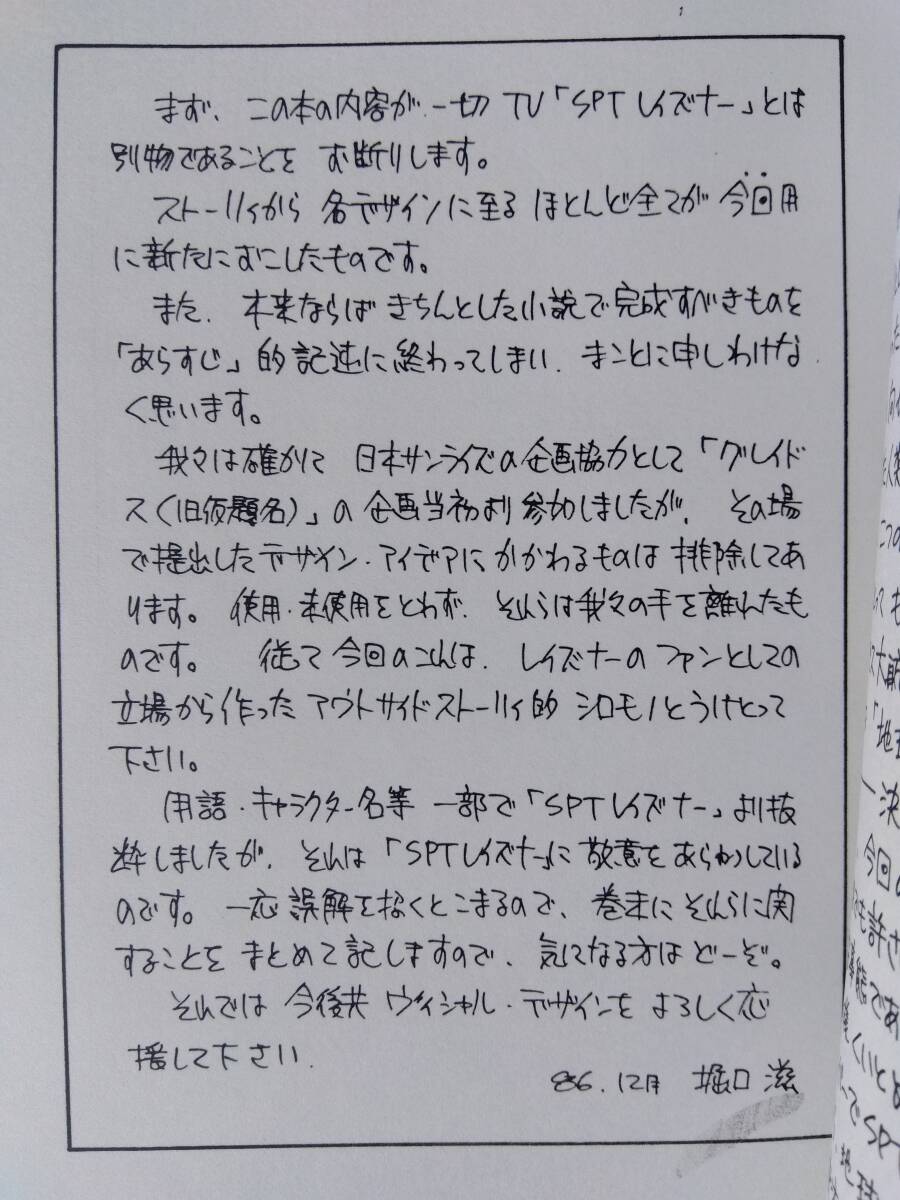 まず、この本の内容が、一切 TV「SPT レイズナー」とは
別物であることを お断りします。
ストーリィから 各デザインに至る ほとんど全てが 今回用
に新たにおこしたものです。
また、本来ならば きちんとした小説で完成すべきものを
「あらすじ」的記述に終わってしまい、まことに申しわけな
く思います。
我々は確かに 日本サンライズの企画協力として「グレイド
ス(旧仮題名)」の企画当初より 参加しましたが、その場
で提出したデザイン・アイデアにかかわるものは 排除してあ
ります。 使用・未使用をとわず、それらは我々の手を離れたも
のです。 従て 今回のこれは、レイズナーの ファンとしての
立場から作った アウトサイドストーリィ的 シロモノとうけとって
下さい。
用語・キャラクター名等 一部で「SPT レイズナー」より抜
粋しましたが、それは「SPTレイズナー」に 敬意をあらわしている
のです。 一応 誤解を招くとこまるので、巻末に それらに関
することを まとめて記しますので、気になる方はどーぞ。
それでは 今後共 ヴィシャル・デザインを よろしく応
援して下さい.
'86.12月 堀口 滋
今回の
も許さ
態であ